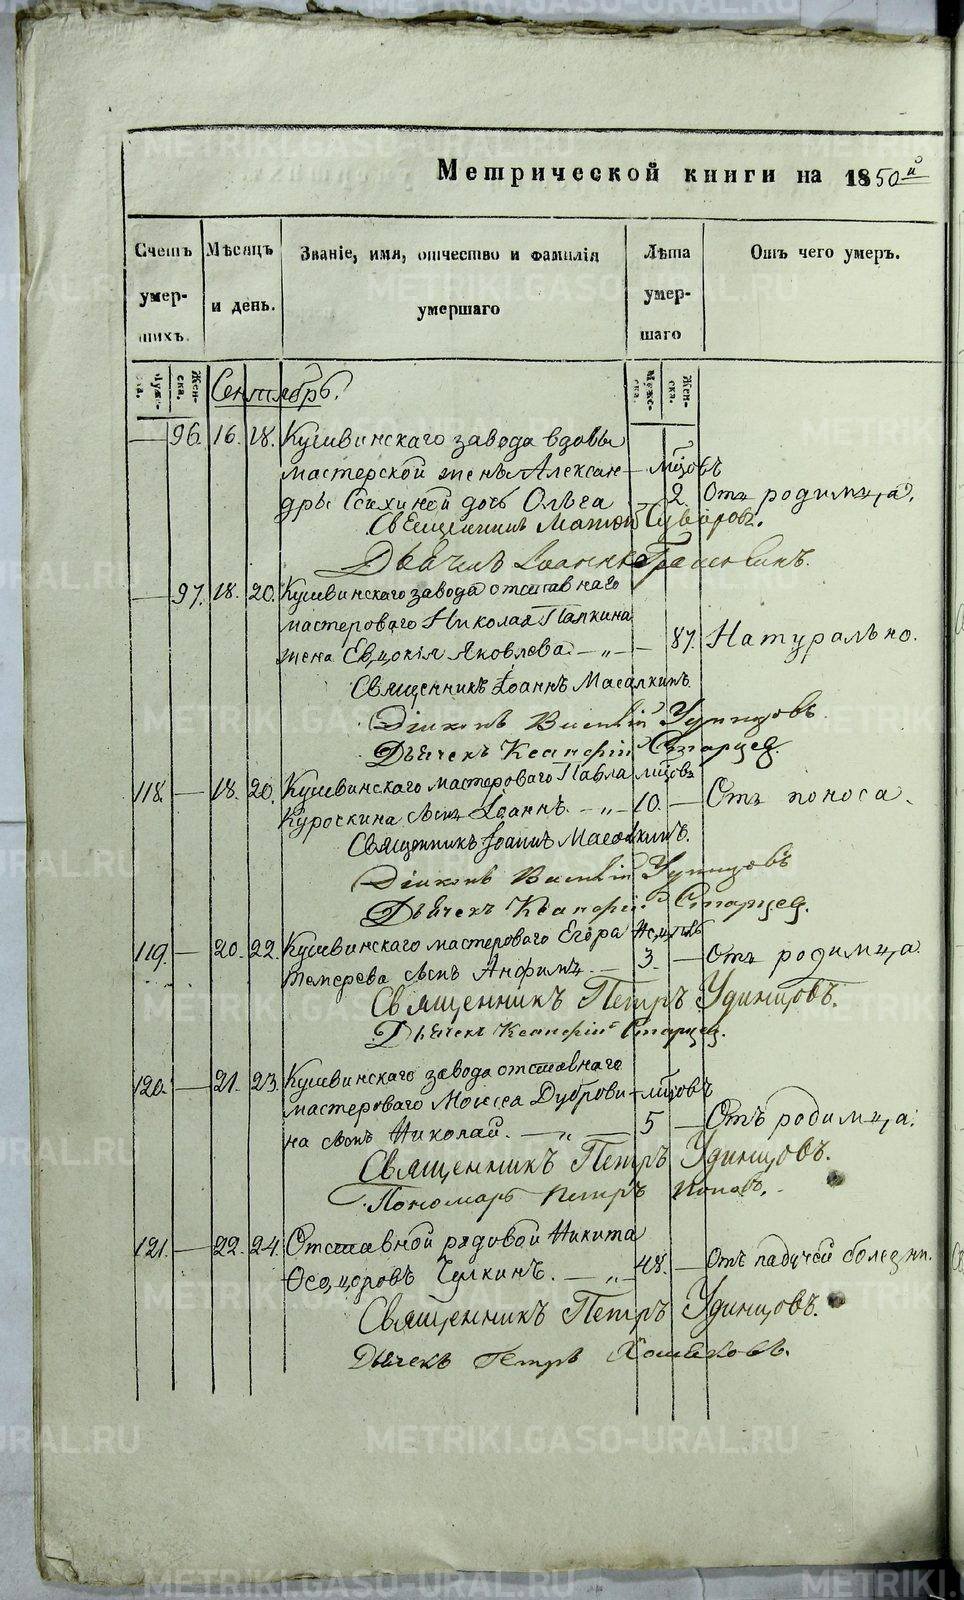 Метрической книги на 1850й
Счетъ умершихъ.
Мѣсяцъ и день.
Званіе, имя, отчество и фамилія умершаго
Лѣта умершаго
Отъ чего умеръ.
Мужеска.
Женска.
Сентябрь.
Мужеска.
Женска.
— 96. 16. 18. Кушвинскаго завода вдовы
мастерской жены Алексан- — мѣсѧцовъ
дры дочь Ольга — 2. Отъ родимца.
Священникъ Суворовъ.
Дьячекъ Іоаннъ
— 97. 18. 20. Кушвинскаго завода отставнаго
мастероваго Николая Пяткина
жена Евдокія Яковлева. — „ — 87. Натурально.
Священникъ Іоаннъ Масалкинъ.
Діаконъ Василій Удинцовъ.
Дьячекъ Ксанфій Старцев.
118. — 18. 20. Кушвинскаго мастероваго Павла
Куроскина сынъ Іоаннъ. — „ — 10. — Отъ поноса.
Священникъ Іоаннъ Масалкинъ.
Діаконъ Василій Удинцовъ
Дьячекъ Ксанфій Старцев.
119. — 20. 22. Кушвинскаго мастероваго Егора
Темерева сынъ Анфимъ — 3. — Отъ родимца.
Священникъ Петръ Удинцовъ.
Дьячекъ Ксанфій Старцев.
120. — 21. 23. Кушвинскаго завода отставнаго
мастероваго Моисея Дуброви-
на сынъ Николай. — „ — 5 — Отъ родимца.
Священникъ Петръ Удинцовъ.
Пономарь Петръ Поповъ.
121. — 22. 24. Отставной рядовой Никита
Ѳеодоровъ Чулкинъ. — „ — 48. — Отъ падучей болезни.
Священникъ Петръ Удинцовъ.
Дьячекъ Петръ Хомяковъ.
METRIKI.GASO-URAL.RU